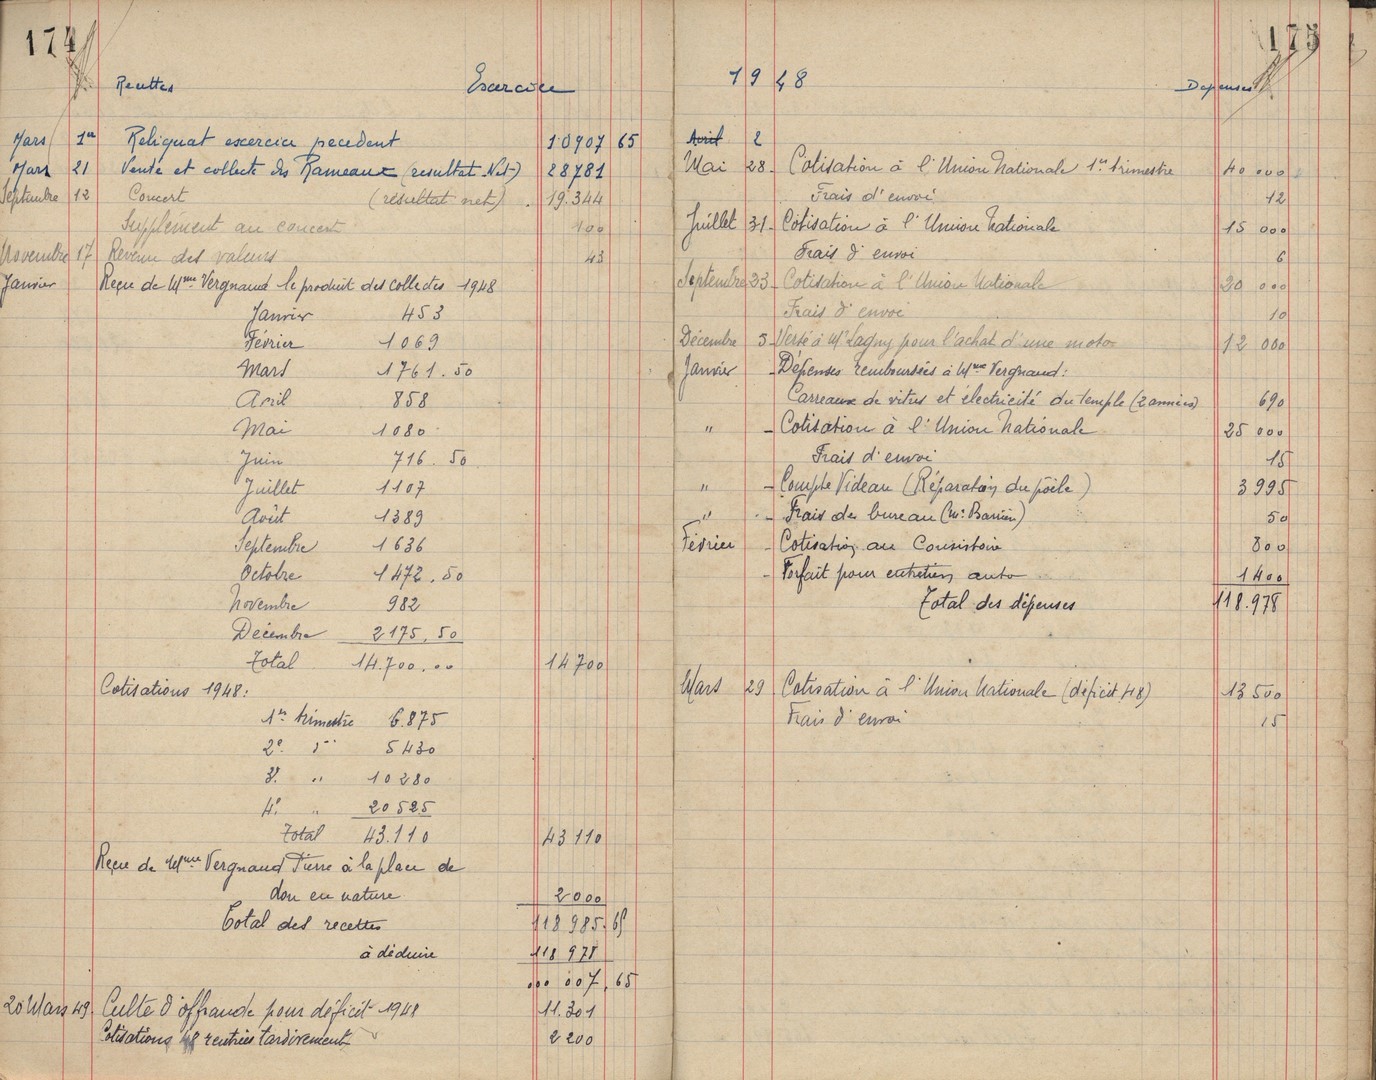 174
Recettes Exercice
Mars 1er Reliquat exercice precedent 10907 65
Mars 21 Vente et collecte des Rameaux (resultat Net) 28781
Septembre 12 Concert (résultat net) 19.344
Supplément au concert 100
Novembre 17 Revenu des valeurs 43
Janvier Reçu de Mme Vergnaud le produit des collectes 1948
Janvier 453
Février 1069
Mars 1761.50
Avril 858
Mai 1080
Juin 716.50
Juillet 1107
Août 1389
Septembre 1636
Octobre 1472.50
Novembre 982
Décembre 2175.50
Total 14.700.00 14700
Cotisations 1948:
1er trimestre 6.875
2e. d° 5430
3e. " 10280
4e. " 20525
Total 43.110 43110
Reçu de Mme Vergnaud Pierre à la place de
don en nature 2000
Total des recettes 118985.65
à déduire 118978
000 007,65
20 Mars 49. Culte d'offrande pour déficit 1948 11.301
Cotisations 48 rentrées tardivement 2200
175
1948 Depenses
Avril 2
Mai 28 - Cotisation à l'Union Nationale 1er trimestre 40 000
Frais d'envoi 12
Juillet 31 - Cotisation à l'Union Nationale 15 000
Frais d'envoi 6
Septembre 23 - Cotisation à l'Union Nationale 20 000
Frais d'envoi 10
Décembre 5 - Versé à Mr Lagny pour l'achat d'une moto 12 000
Janvier - Dépenses remboursées à Mme Vergnaud:
Carreaux de vitres et électricité du temple (2 années) 690
" - Cotisation à l'Union Nationale 25 000
Frais d'envoi 15
" - Compte Videau (Réparation du poêle) 3995
" - Frais de bureau (Mr Barrier) 50
Février - Cotisation au Consistoire 800
- Forfait pour entretien auto 1400
Total des dépenses 118.978
Mars 29 Cotisation à l'Union Nationale (déficit 48) 13500
Frais d'envoi 15